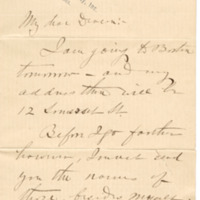 My dear Dawson:-
I am going to Boston
tomorrow - and my
address there will be
12 Somerset St.
Before I go further
however, I must send
you the names of
these